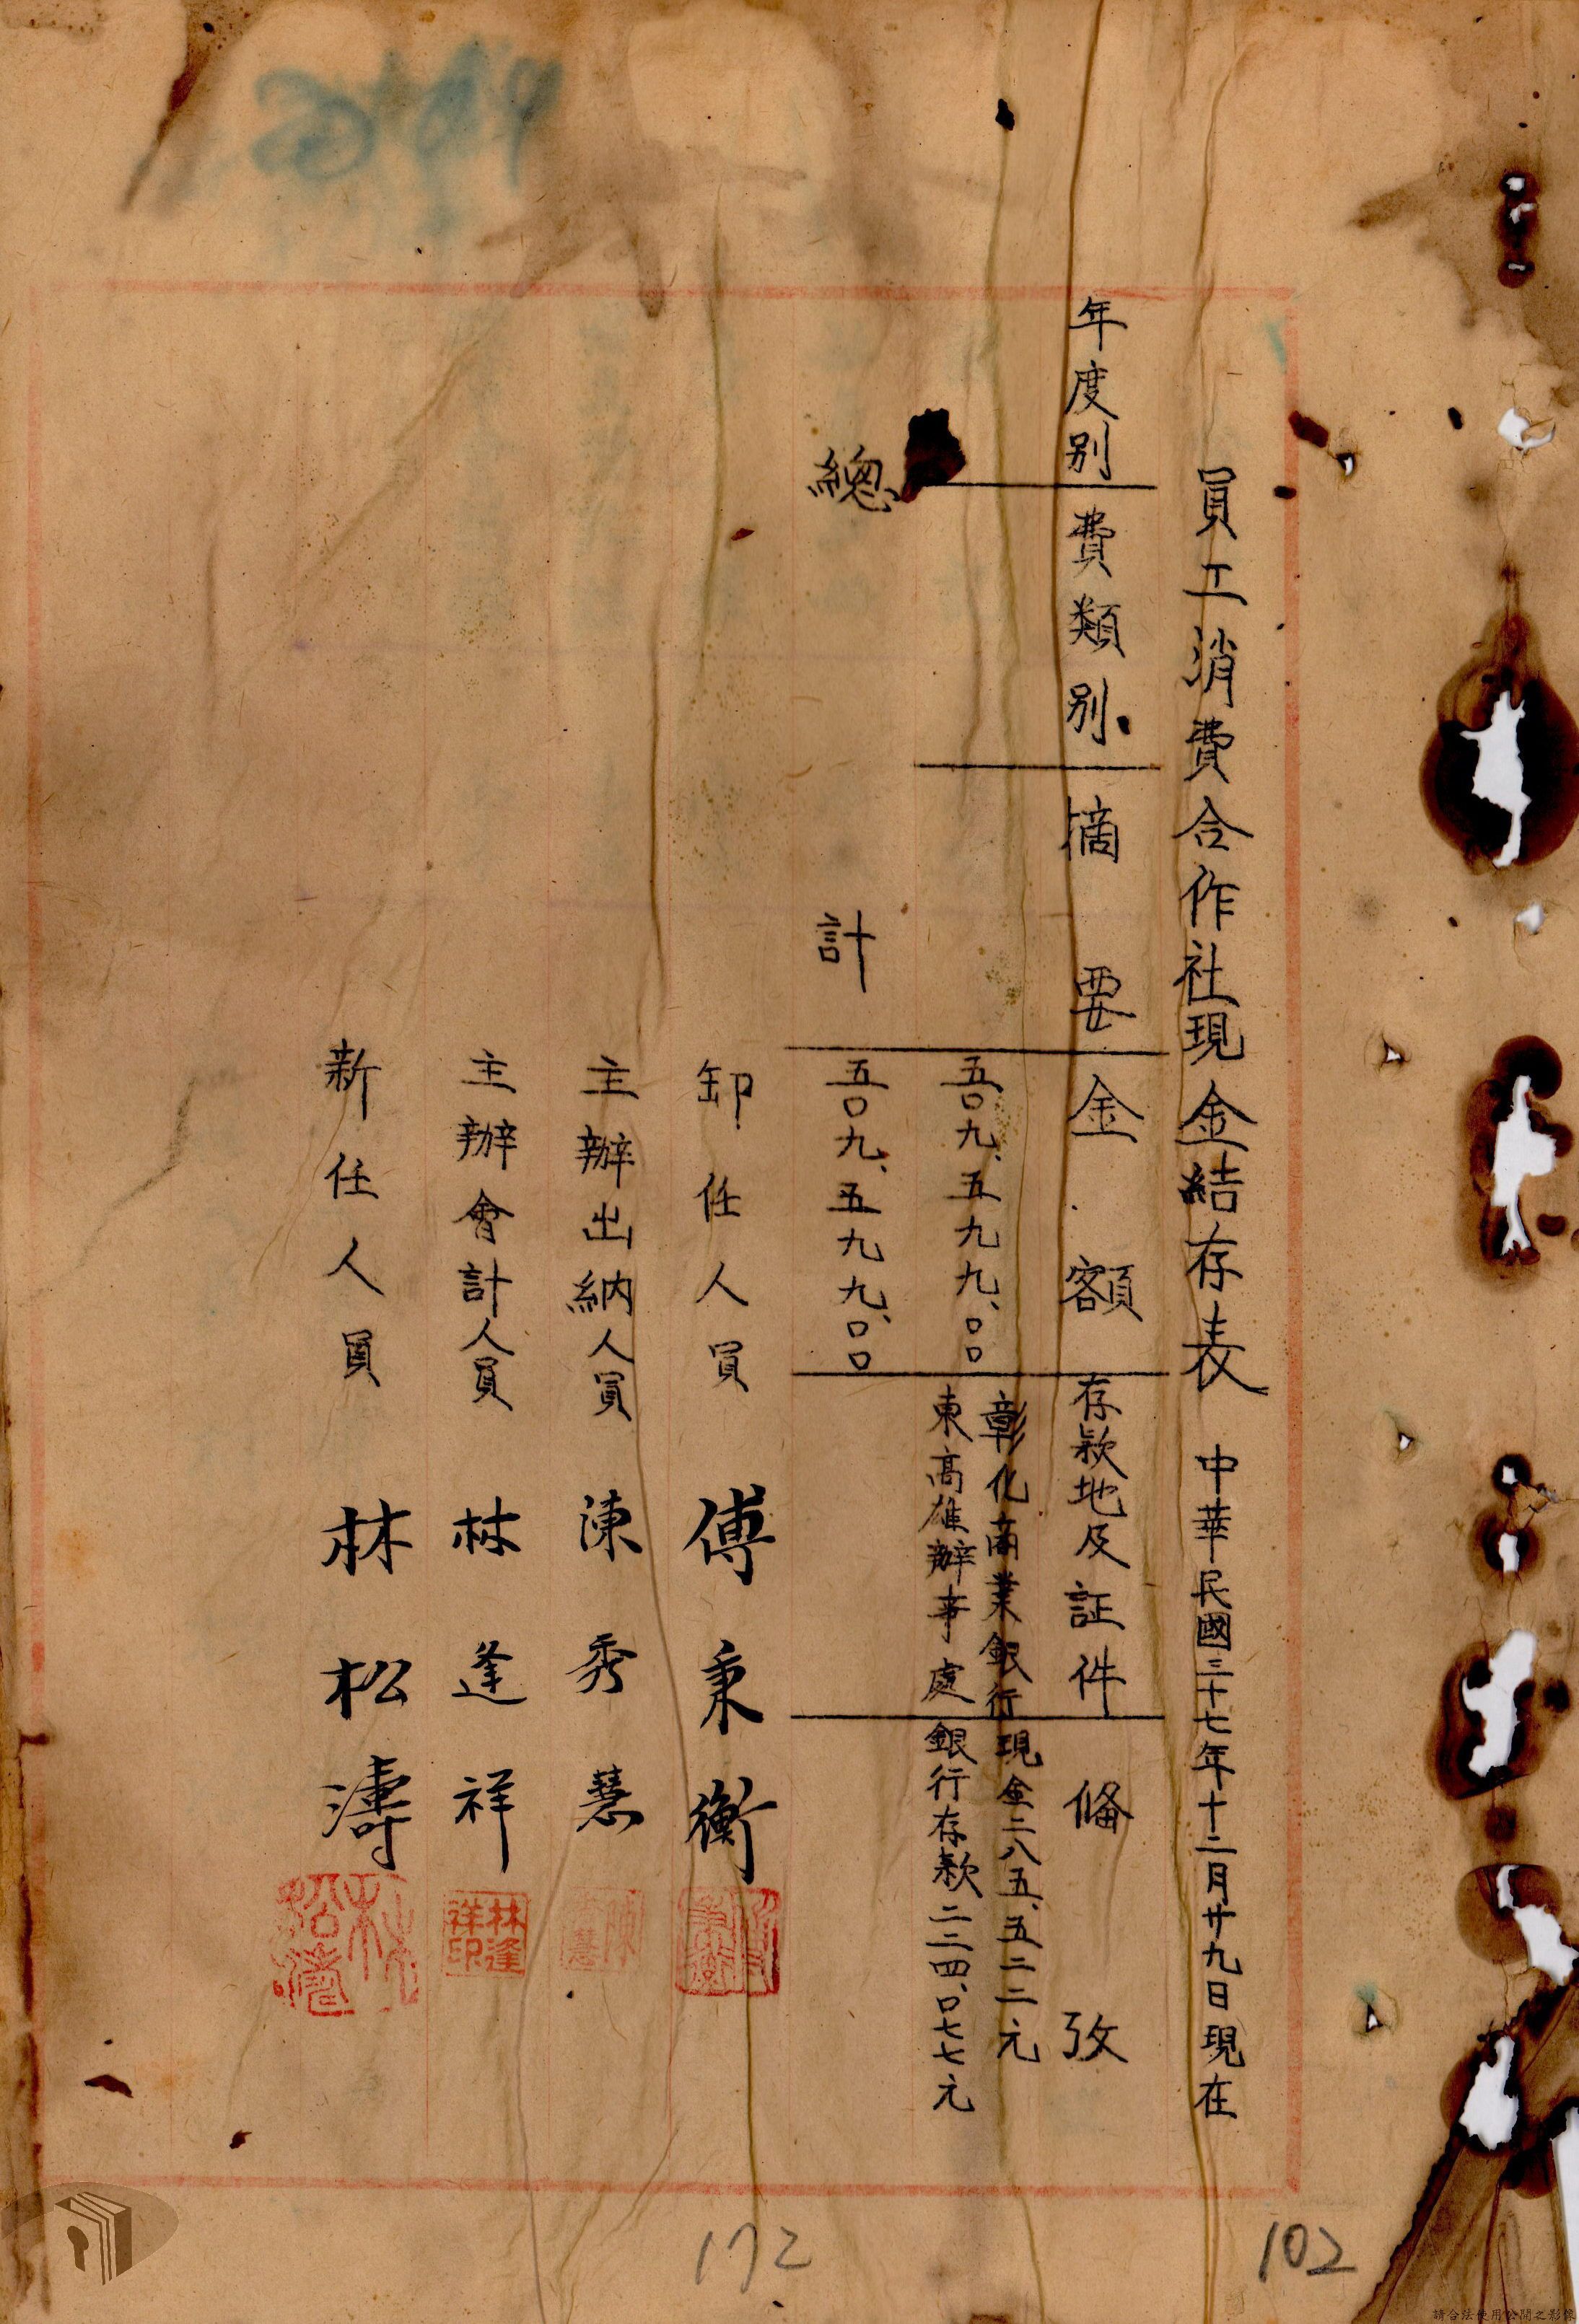 員工消費合作社現金結存表 中華民國三十七年十二月廿九日現在
年度別 費類別 摘要 金額 存款地及証件 俻攷
五〇九、五九九、〇〇 彰化商業銀行 現金二八五、五二二元
東高雄辦事處 銀行存款二二四、〇七七元
總計 五〇九、五九九、〇〇
卸任人員 傅秉衡
主辦出納人員 陳秀慧
主辦會計人員 林逢祥
林逢祥印
新任人員 林松濤
林松濤
102
172
請合法使用公開之影像